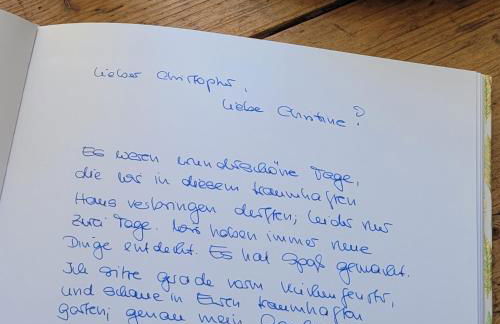 Lieber Christoph,
liebe Christine?
Es waren wunderschöne Tage,
die wir in diesem traumhaften
Haus verbringen durften; leider nur
zwei Tage. Wir haben immer neue
Dinge entdeckt. Es hat Spaß gemacht.
Ich sitze gerade vorm Küchenfenster,
und schaue in Euren traumhaften
Garten; genau mein